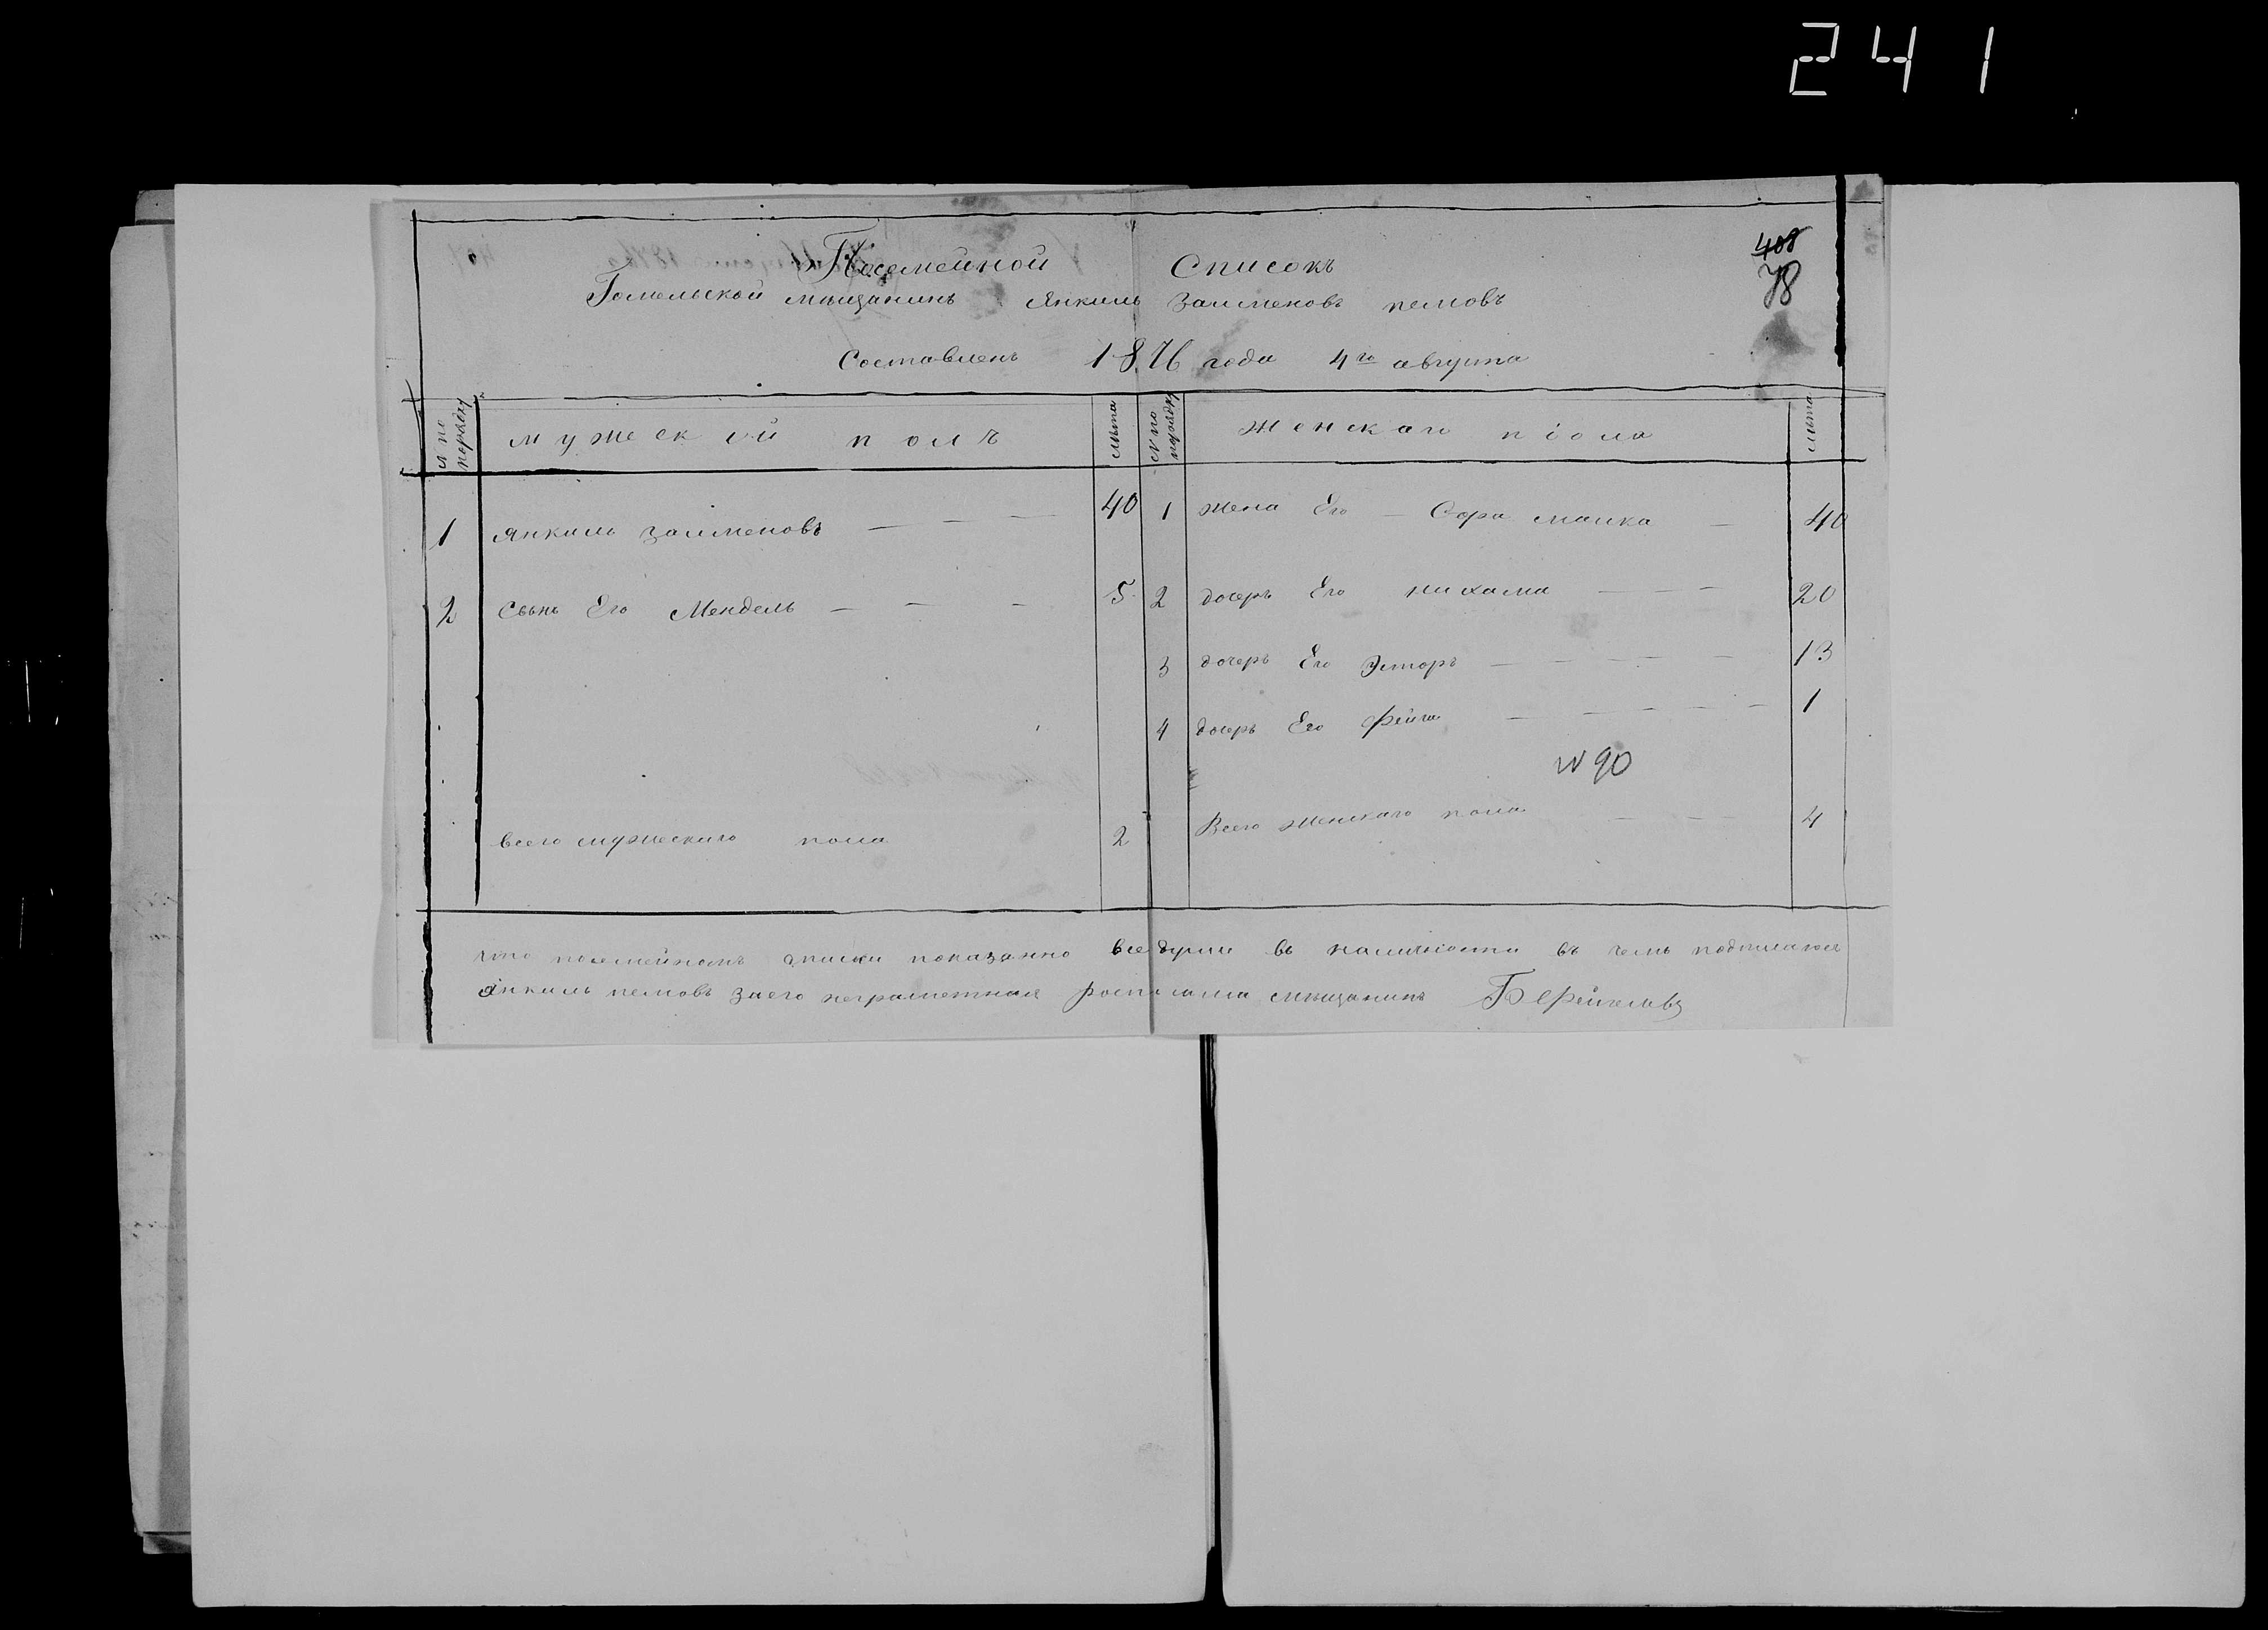 241
408
78
Посемейной Списокъ
Гомельской мыщанинъ Янкиль Залменовъ пемовъ
Составленъ 1876 года 4го августа
№ по порядку
мужеской полъ
лѣта
№ по порядку
женскаго пола
лѣта
1 Янкиль Залменовъ — — — 40
1 жена Его — Сора малка — 40
2 Сынъ Его Мендель — — — 5
2 дочеръ Его нихама — — — 20
3 дочеръ Его Эстеръ — — — — — 13
4 дочеръ Его Фейга — — — — — — 1
№ 90
всего мужескаго пола 2
Всего женскаго пола — — — 4
что посемейномъ списки показанно все души въ наличности въ чемъ подписаюся
Янкиль пемовъ заего неграметная росписалса мыщанинъ